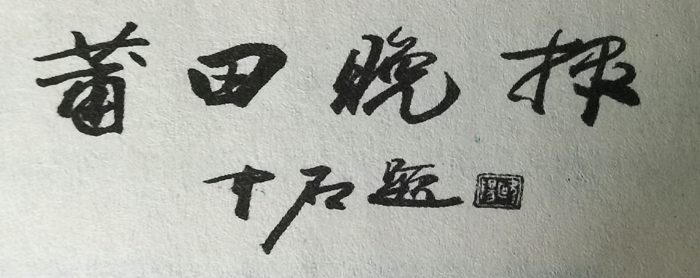 莆田晚报
十石题